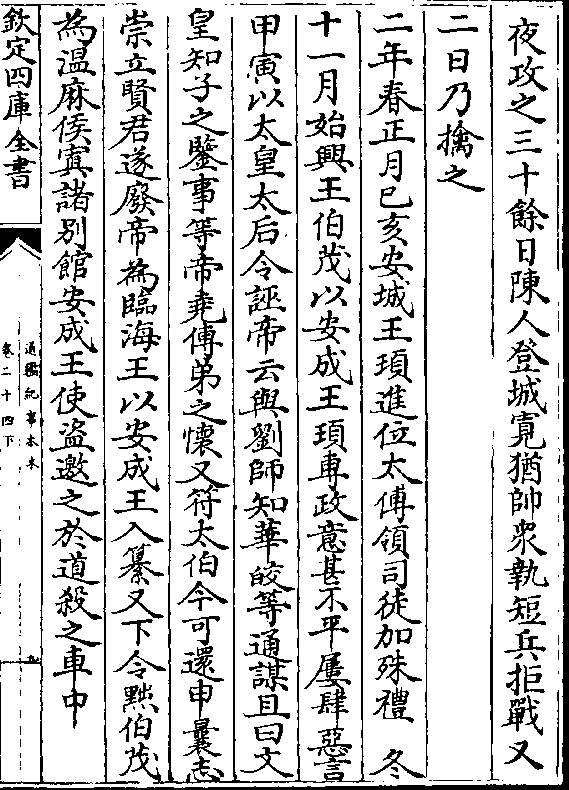 夜攻之三十餘日陳人登城寛猶帥衆執短兵拒戰又
二日乃擒之
二年春正月已亥安城王頊進位太傅領司徒加殊禮　冬
十一月始興王伯茂以安成王頊專政意甚不平屢肆惡言
甲寅以太皇太后令誣帝云與劉師知華皎等通謀且曰文
皇知子之鑒事等帝堯傅弟之懷又符太伯今可還申曩志
崇立賢君遂廢帝為臨海王以安成王入纂又下令黜伯茂
為温麻侯寘諸別館安成王使盜邀之於道殺之車中
欽定四庫全書
通鑑紀事本末
卷二十四下